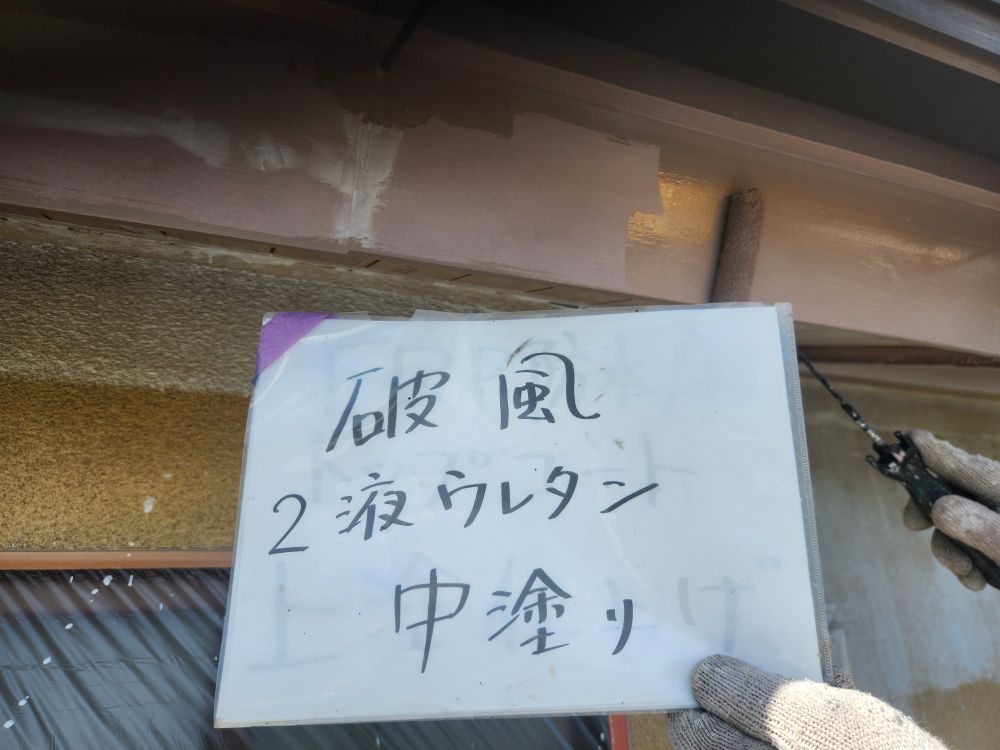 破風
2液ウレタン
中塗り